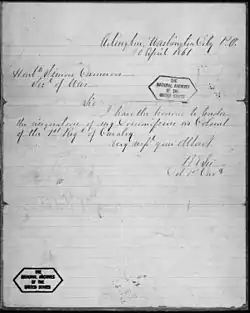 Arlington, Washington City P.O.
20 April 1861
Honble Simon Cameron
Secy of War
Sir
THE
NATIONAL ARCHIVES
OF THE
UNITED STATES
I have the honour to tender
the resignation of my Commission as Colonel
of the 1st Regt of Cavalry
Very respy your Obt Servt
R E Lee
Col 1st Cavy
THE
NATIONAL ARCHIVES
OF THE
UNITED STATES